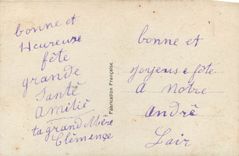 bonne et
Heureuse
fête
grande
Santé
amitié
ta grand Mère
Clémence
Fabrication Française
bonne et
Joyeuse fête
a Notre
andré
Lair